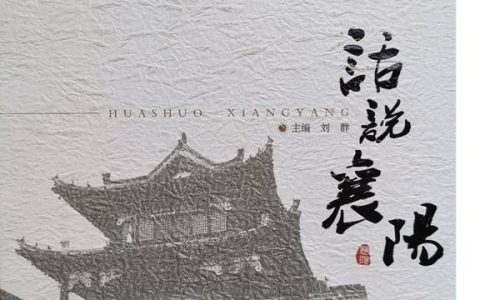 話說襄陽
HUASHUO XIANGYANG
主编 刘 群